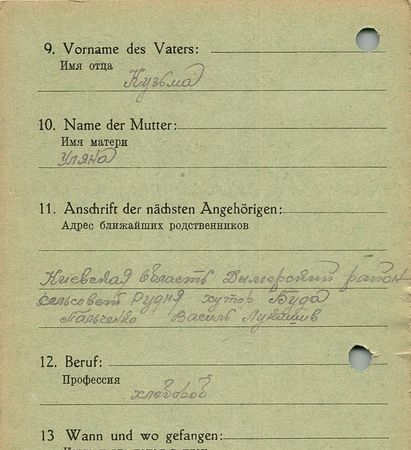 9. Vorname des Vaters:
Имя отца
Кузьма
10. Name der Mutter:
Имя матери
Уляна
11. Anschrift der nächsten Angehörigen:
Адрес ближайших родственников
Киевская область Дымерский район
сельсовет Рудня хутор Буда
Пальченко Василь Лукашів
12. Beruf:
Профессия
хлебороб
13 Wann und wo gefangen: